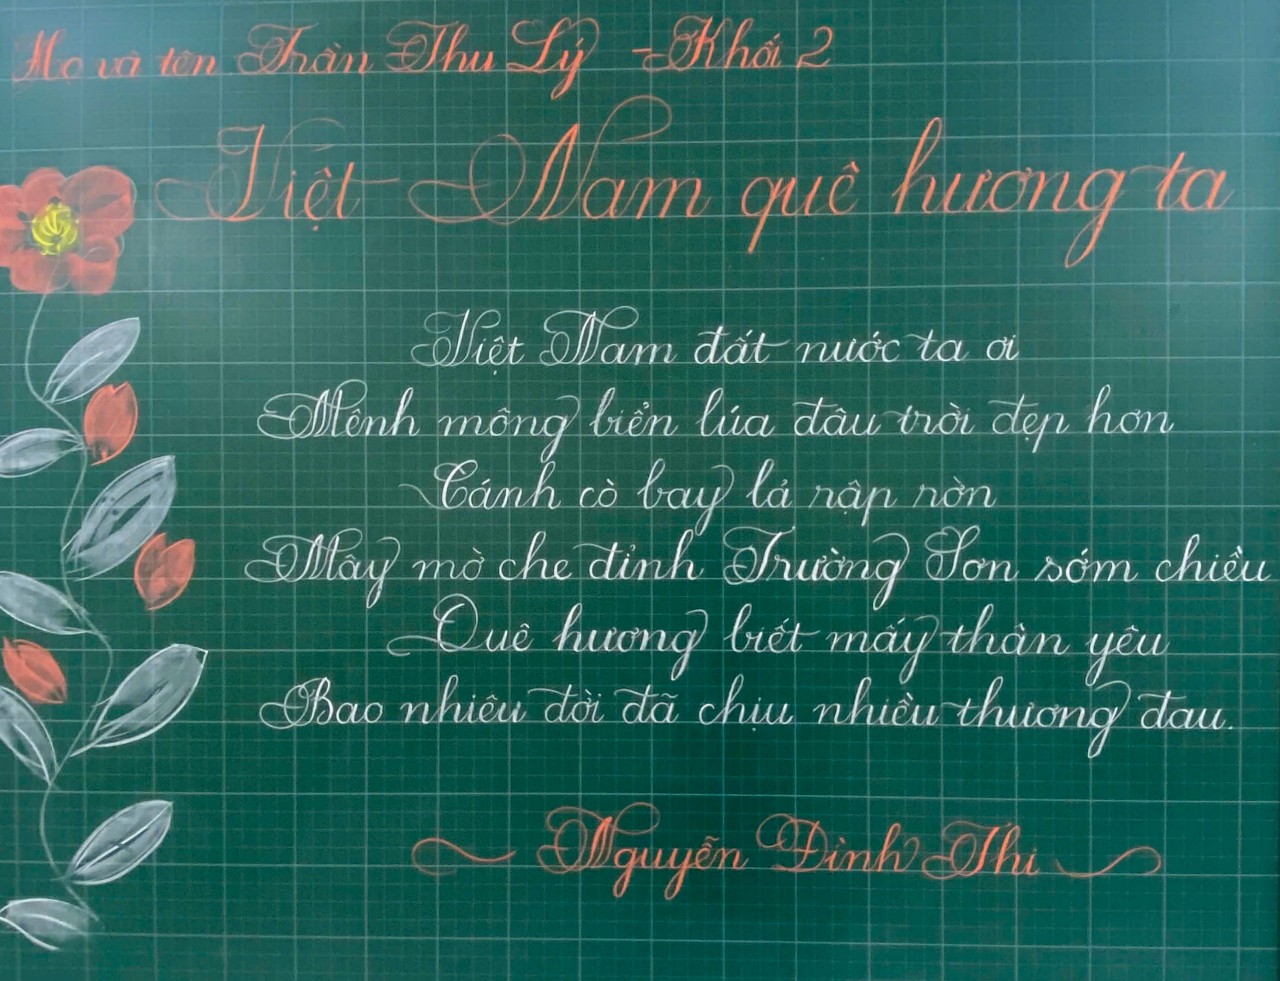 Họ và tên Trần Thu Lý - Khối 2
Việt Nam quê hương ta
Việt Nam đất nước ta ơi
Mênh mông biển lúa đâu trời đẹp hơn
Cánh cò bay lả rập rờn
Mây mờ che đỉnh Trường Sơn sớm chiều
Quê hương biết mấy thân yêu
Bao nhiêu đời đã chịu nhiều thương đau.
Nguyễn Đình Thi